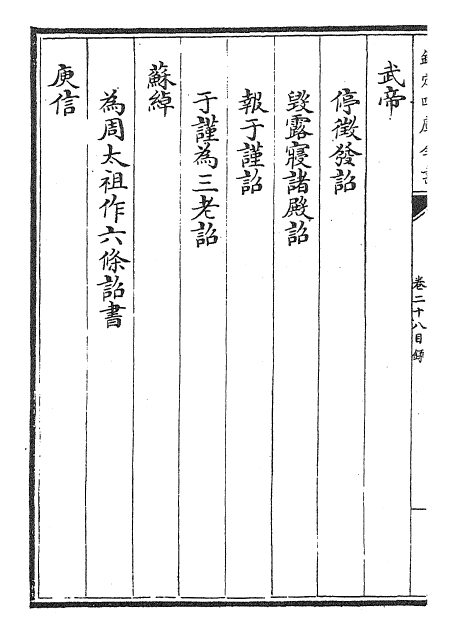 欽定四庫全書
卷二十八目錄
武帝
停徵發詔
毀露寢諸殿詔
報于謹詔
于謹為三老詔
蘇綽
為周太祖作六條詔書
庾信